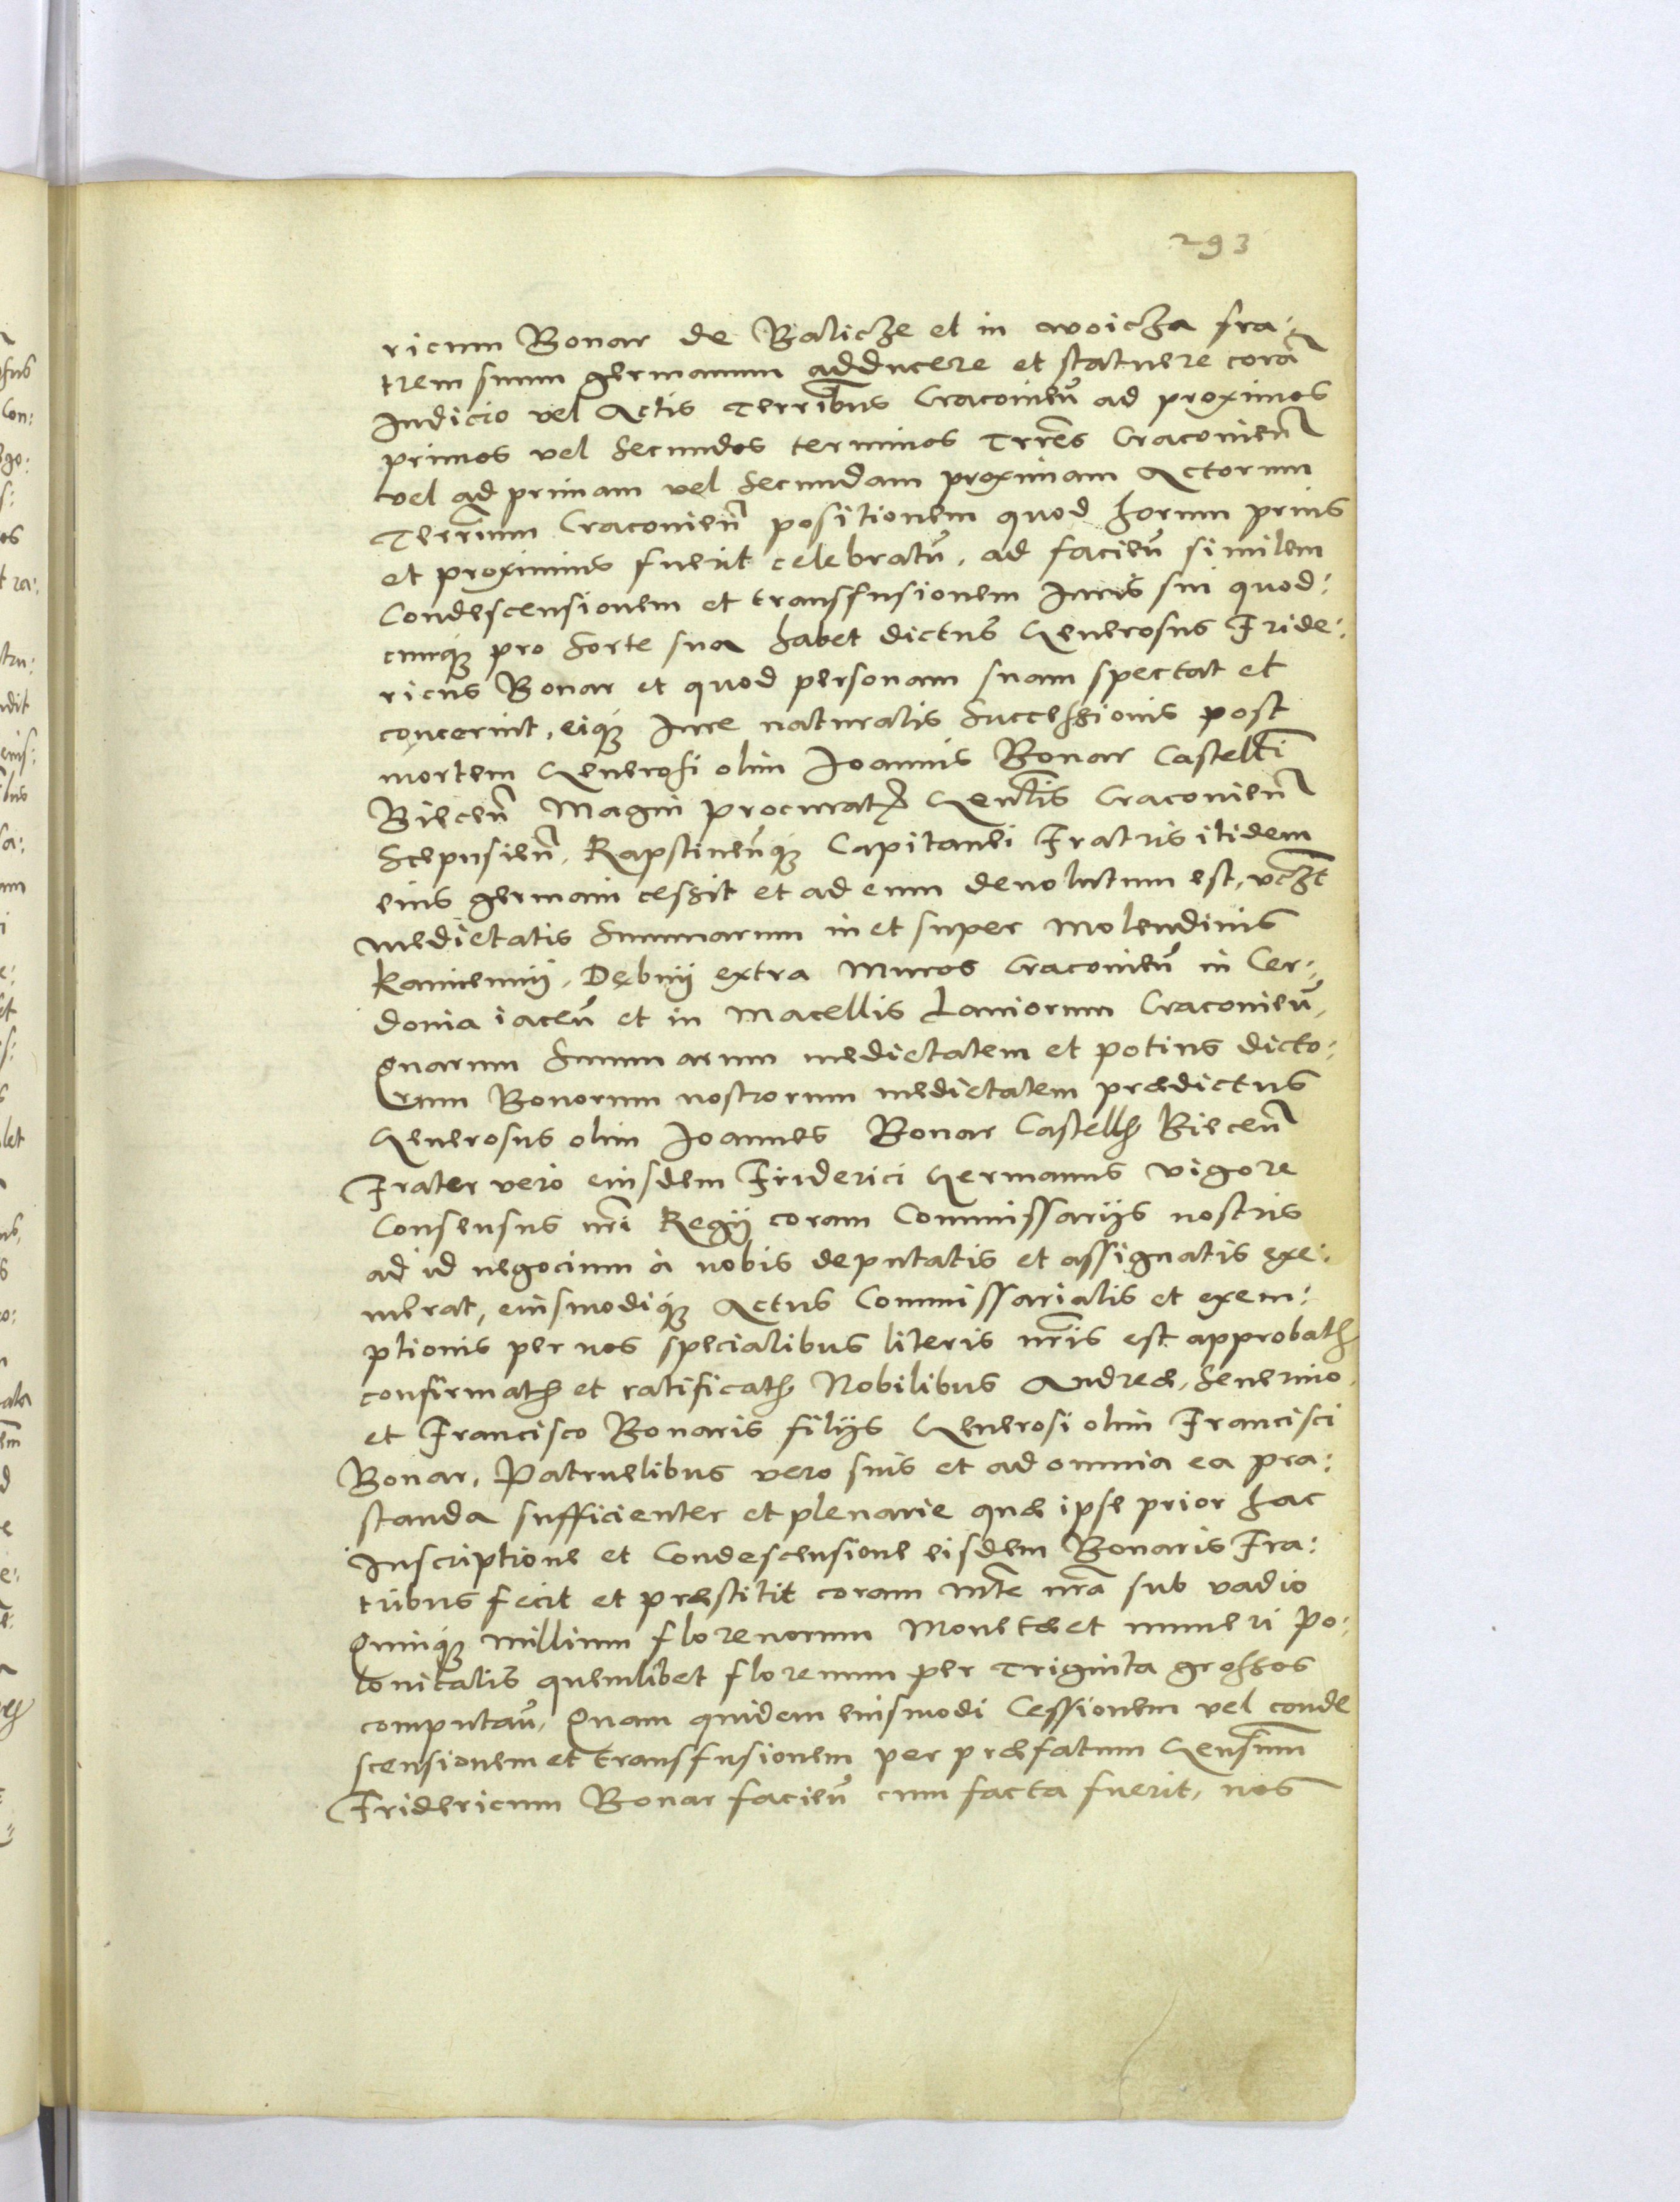 293
ricum Bonar de Balicze et in woicza fra:
trem suum germanum adducere et statuere corã
Iudicio vel Actis Terribus Cracovieñ ad proximos
primos vel secundos terminos Trres Cracovieñ
vel ad primam vel secundam proximam Actorum
Terrium Cracovieñ positionem quod horum prius
et proximius fuerit celebratũ, ad facieñ similem
Condescensionem et transfusionem Iuris sui quod:
cunq3 pro sorte sua habet dictus Generosus Fride:
ricus Bonar et quod personam suam spectat et
concernit, eiq3 Iure naturalis successionis post
mortem Generosi olim Ioannis Bonar Castelli
Bieceñ Magni procurat Genlis Cracovieñ
Scepusieñ, Rapstineñq3 Capitanei Fratris itidem
eius germani cessit et ad eum devolutum est, vczt
medietatis summarum in et super Molendinis
kamiennij, Dębnij extra muros Cracovieñ in Cer:
donia iaceñ et in Macellis Laniorum Cracovieñ,
Quarum summarum medietatem et potius dicto:
rum Bonorum nostrorum medietatem prædictus
Generosus olim Ioannes Bonar Castell Bieceñ
Frater vero eiusdem Friderici Germanus vigore
Consensus nri Regij coram Commissarijs nostris
ad id negocium à nobis deputatis et assignatis exe:
merat, eiusmodiq3 Actus Commissarialis et exem:
ptionis per nos specialibus literis nris est approbat
confirmat et ratificat Nobilibus Andreæ, Severino,
et Francisco Bonaris filijs Generosi olim Francisci
Bonar, Patruelibus vero suis et ad omnia ea præ:
standa sufficienter et plenarie quæ ipse prior hac
Inscriptione et Condescensione eisdem Bonaris Fra:
tribus fecit et præstitit coram Mte nra sub vadio
Quinq3 millium florenorum Monetæ et numeri Po:
lonicalis quemlibet florenum per triginta grossos
computañ, Quam quidem eiusmodi Cessionem vel conde
scensionem et transfusionem per præfatum Gensum
Fridericum Bonar facieñ cum facta fuerit, nos